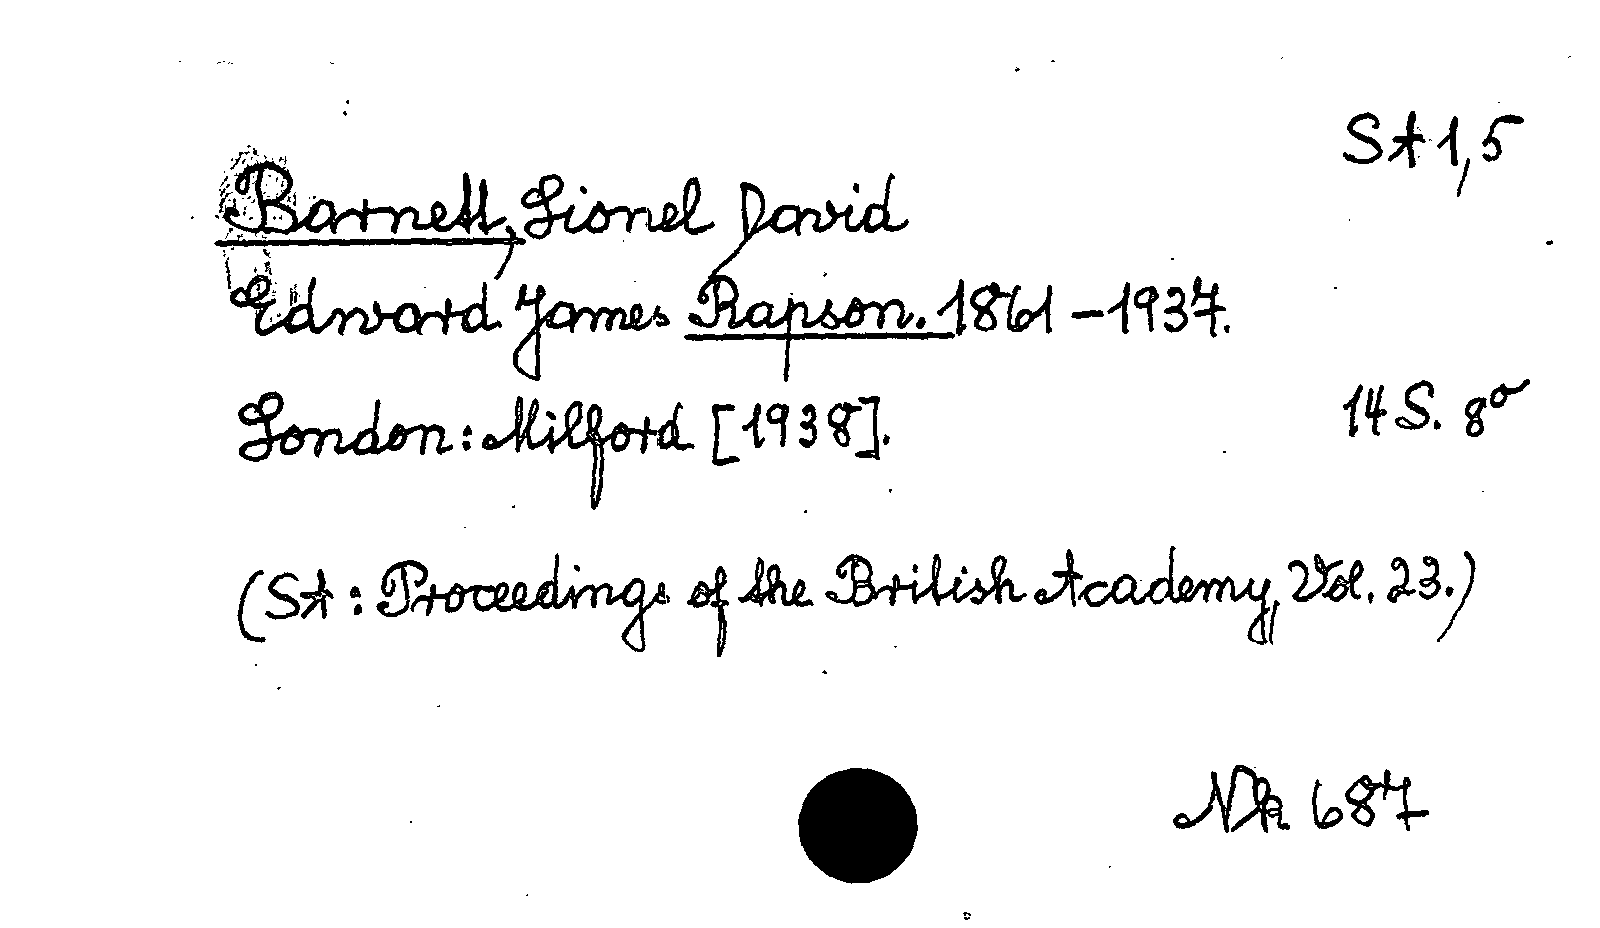 SA 1,5
Barnett, Lionel David
Edward James Rapson. 1861-1937.
London: Milford [1938].
14 S. 8°
(SA: Proceedings of the British Academy, Vol. 23.)
Nk 687